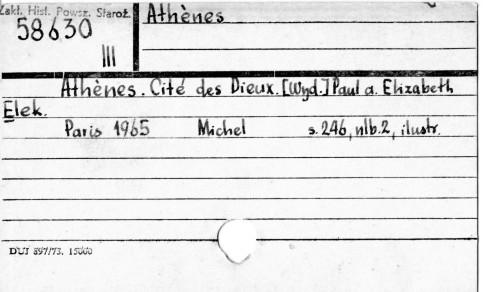 Zakł. Hist. Powsz. Staroż.
58630
III
Athènes
Athènes. Cité des Dieux. [Wyd.] Paul a. Elizabeth
Elek.
Paris 1965 Michel s. 246, nlb. 2, ilustr.
DUJ 897/73. 15000